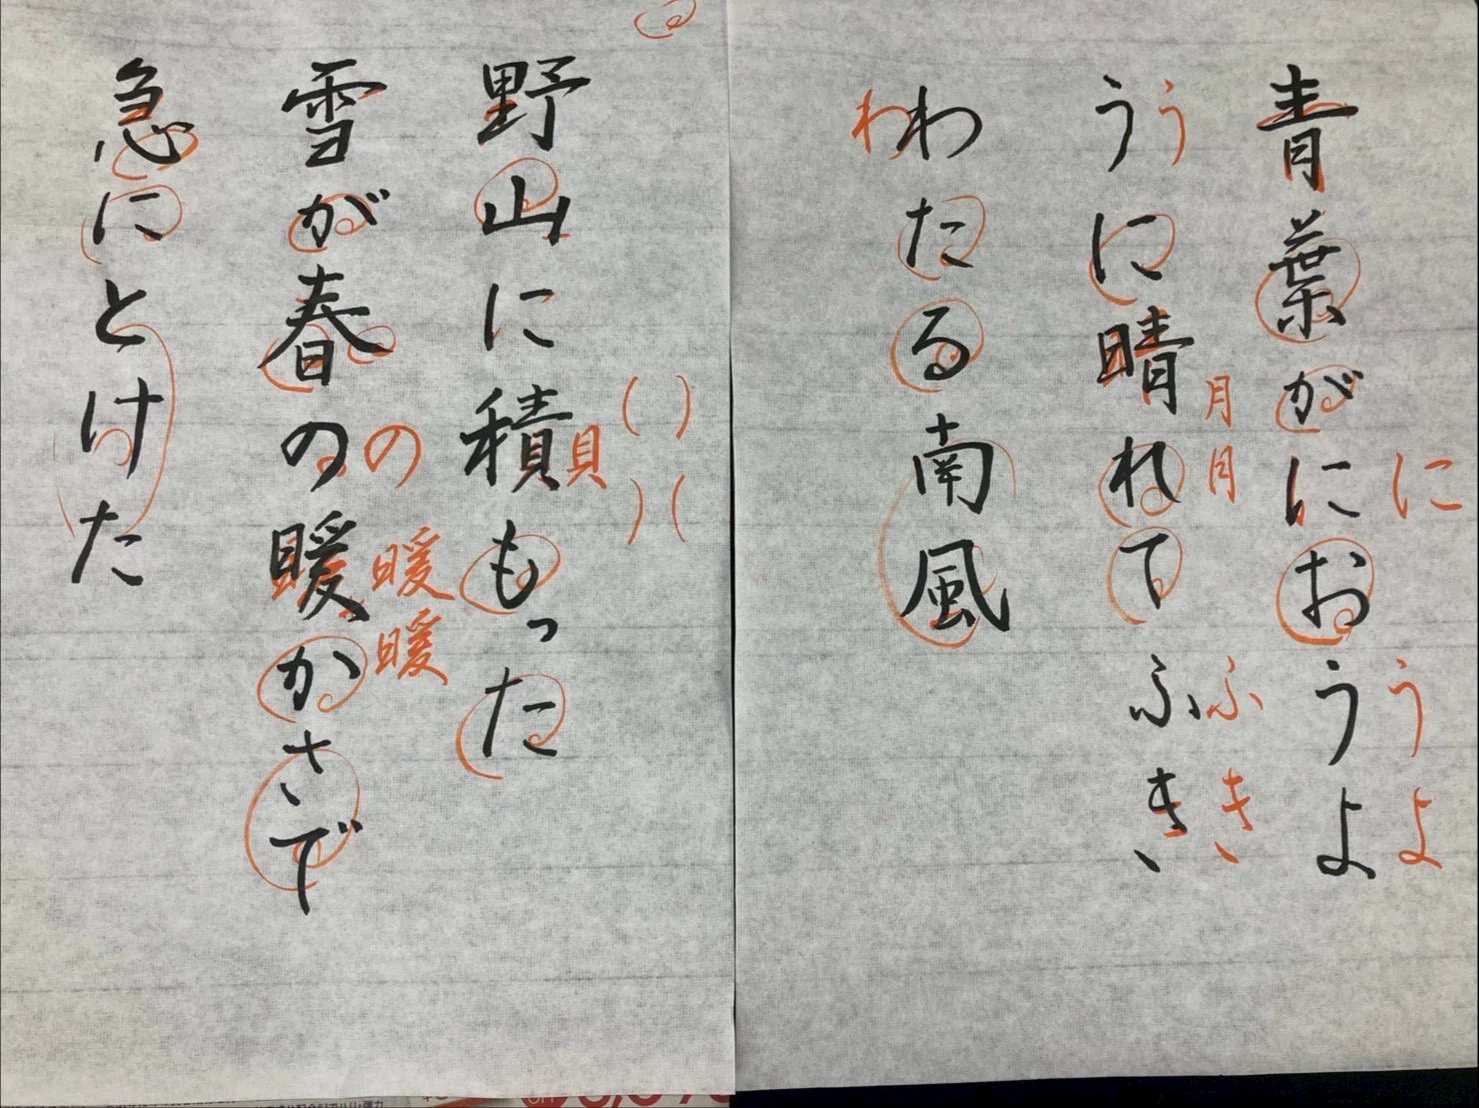 青葉がにおうよ
うに晴れてふき
わたる南風
に
うよ
う
月
月
ふき
わ
野山に積もった
雪が春の暖かさで
急にとけた
貝
の
暖
暖